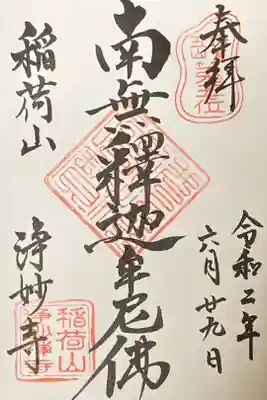 奉拝
令和二年
六月廿九日
南無釋迦牟尼佛
稲荷山
浄妙寺
稲荷山
浄妙寺